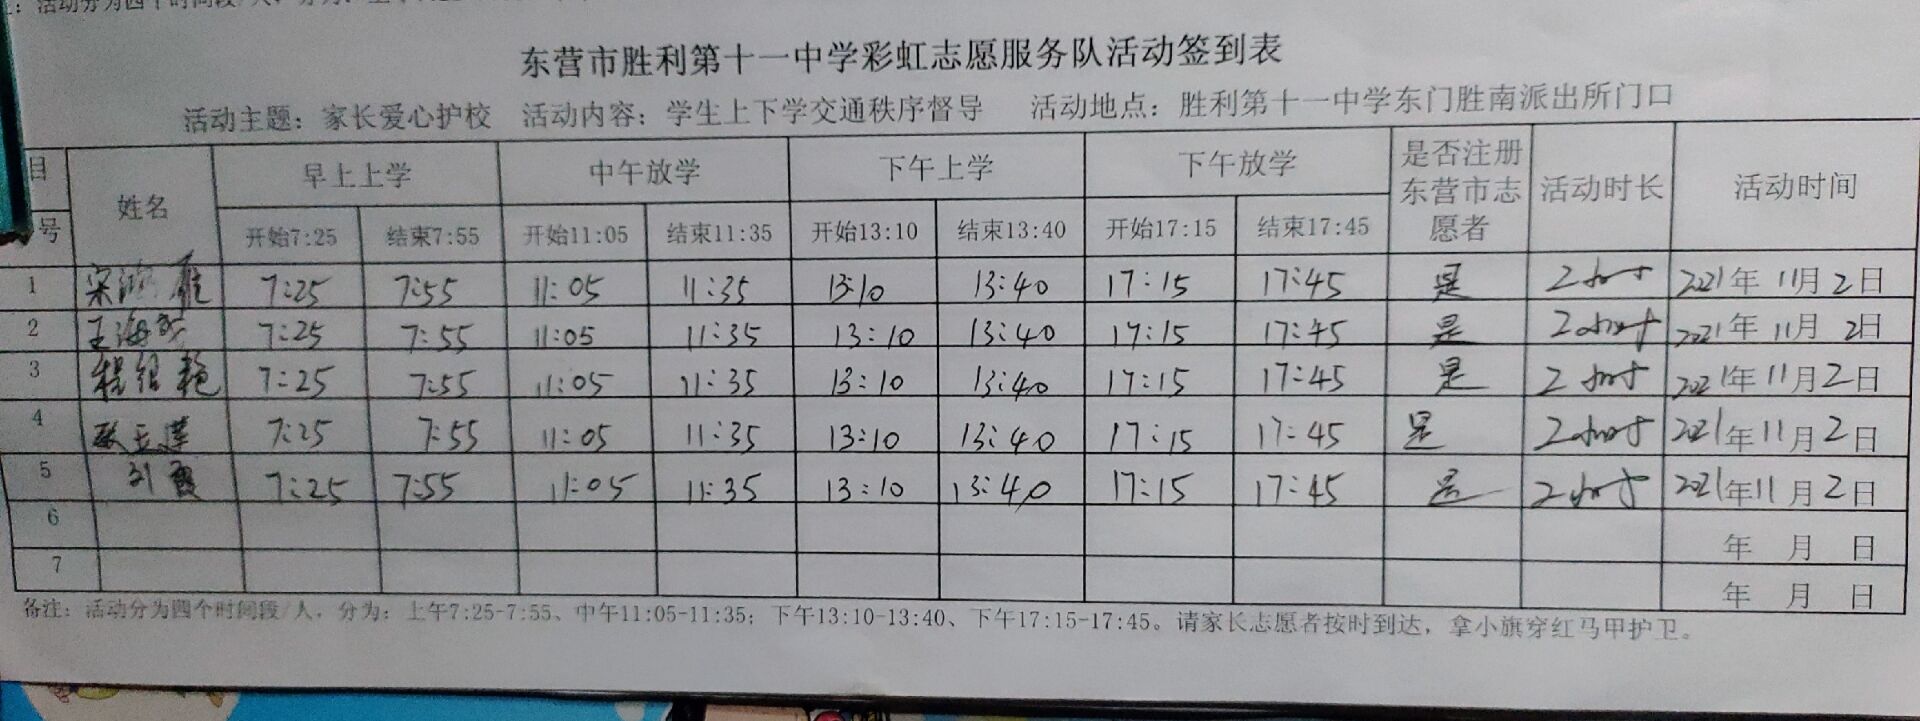 活动分为四个时间段/人，分为：上午7:25
东营市胜利第十一中学彩虹志愿服务队活动签到表
活动主题：家长爱心护校 活动内容：学生上下学交通秩序督导 活动地点：胜利第十一中学东门胜南派出所门口
目 姓名 早上上学 中午放学 下午上学 下午放学 是否注册东营市志愿者 活动时长 活动时间
号 开始7:25 结束7:55 开始11:05 结束11:35 开始13:10 结束13:40 开始17:15 结束17:45
1 宋鸿雁 7:25 7:55 11:05 11:35 13:10 13:40 17:15 17:45 是 2小时 2021年11月2日
2 王海 7:25 7:55 11:05 11:35 13:10 13:40 17:15 17:45 是 2小时 2021年11月2日
3 程绍艳 7:25 7:55 11:05 11:35 13:10 13:40 17:15 17:45 是 2小时 2021年11月2日
4 玉莲 7:25 7:55 11:05 11:35 13:10 13:40 17:15 17:45 是 2小时 2021年11月2日
5 刘霞 7:25 7:55 11:05 11:35 13:10 13:40 17:15 17:45 是 2小时 2021年11月2日
6 年 月 日
7 年 月 日
备注：活动分为四个时间段/人，分为：上午7:25-7:55、中午11:05-11:35；下午13:10-13:40、下午17:15-17:45。请家长志愿者按时到达，拿小旗穿红马甲护卫。